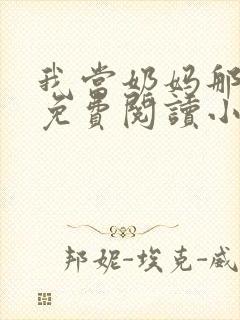 我当奶妈那
免費閱讀小
邦妮-埃克-威